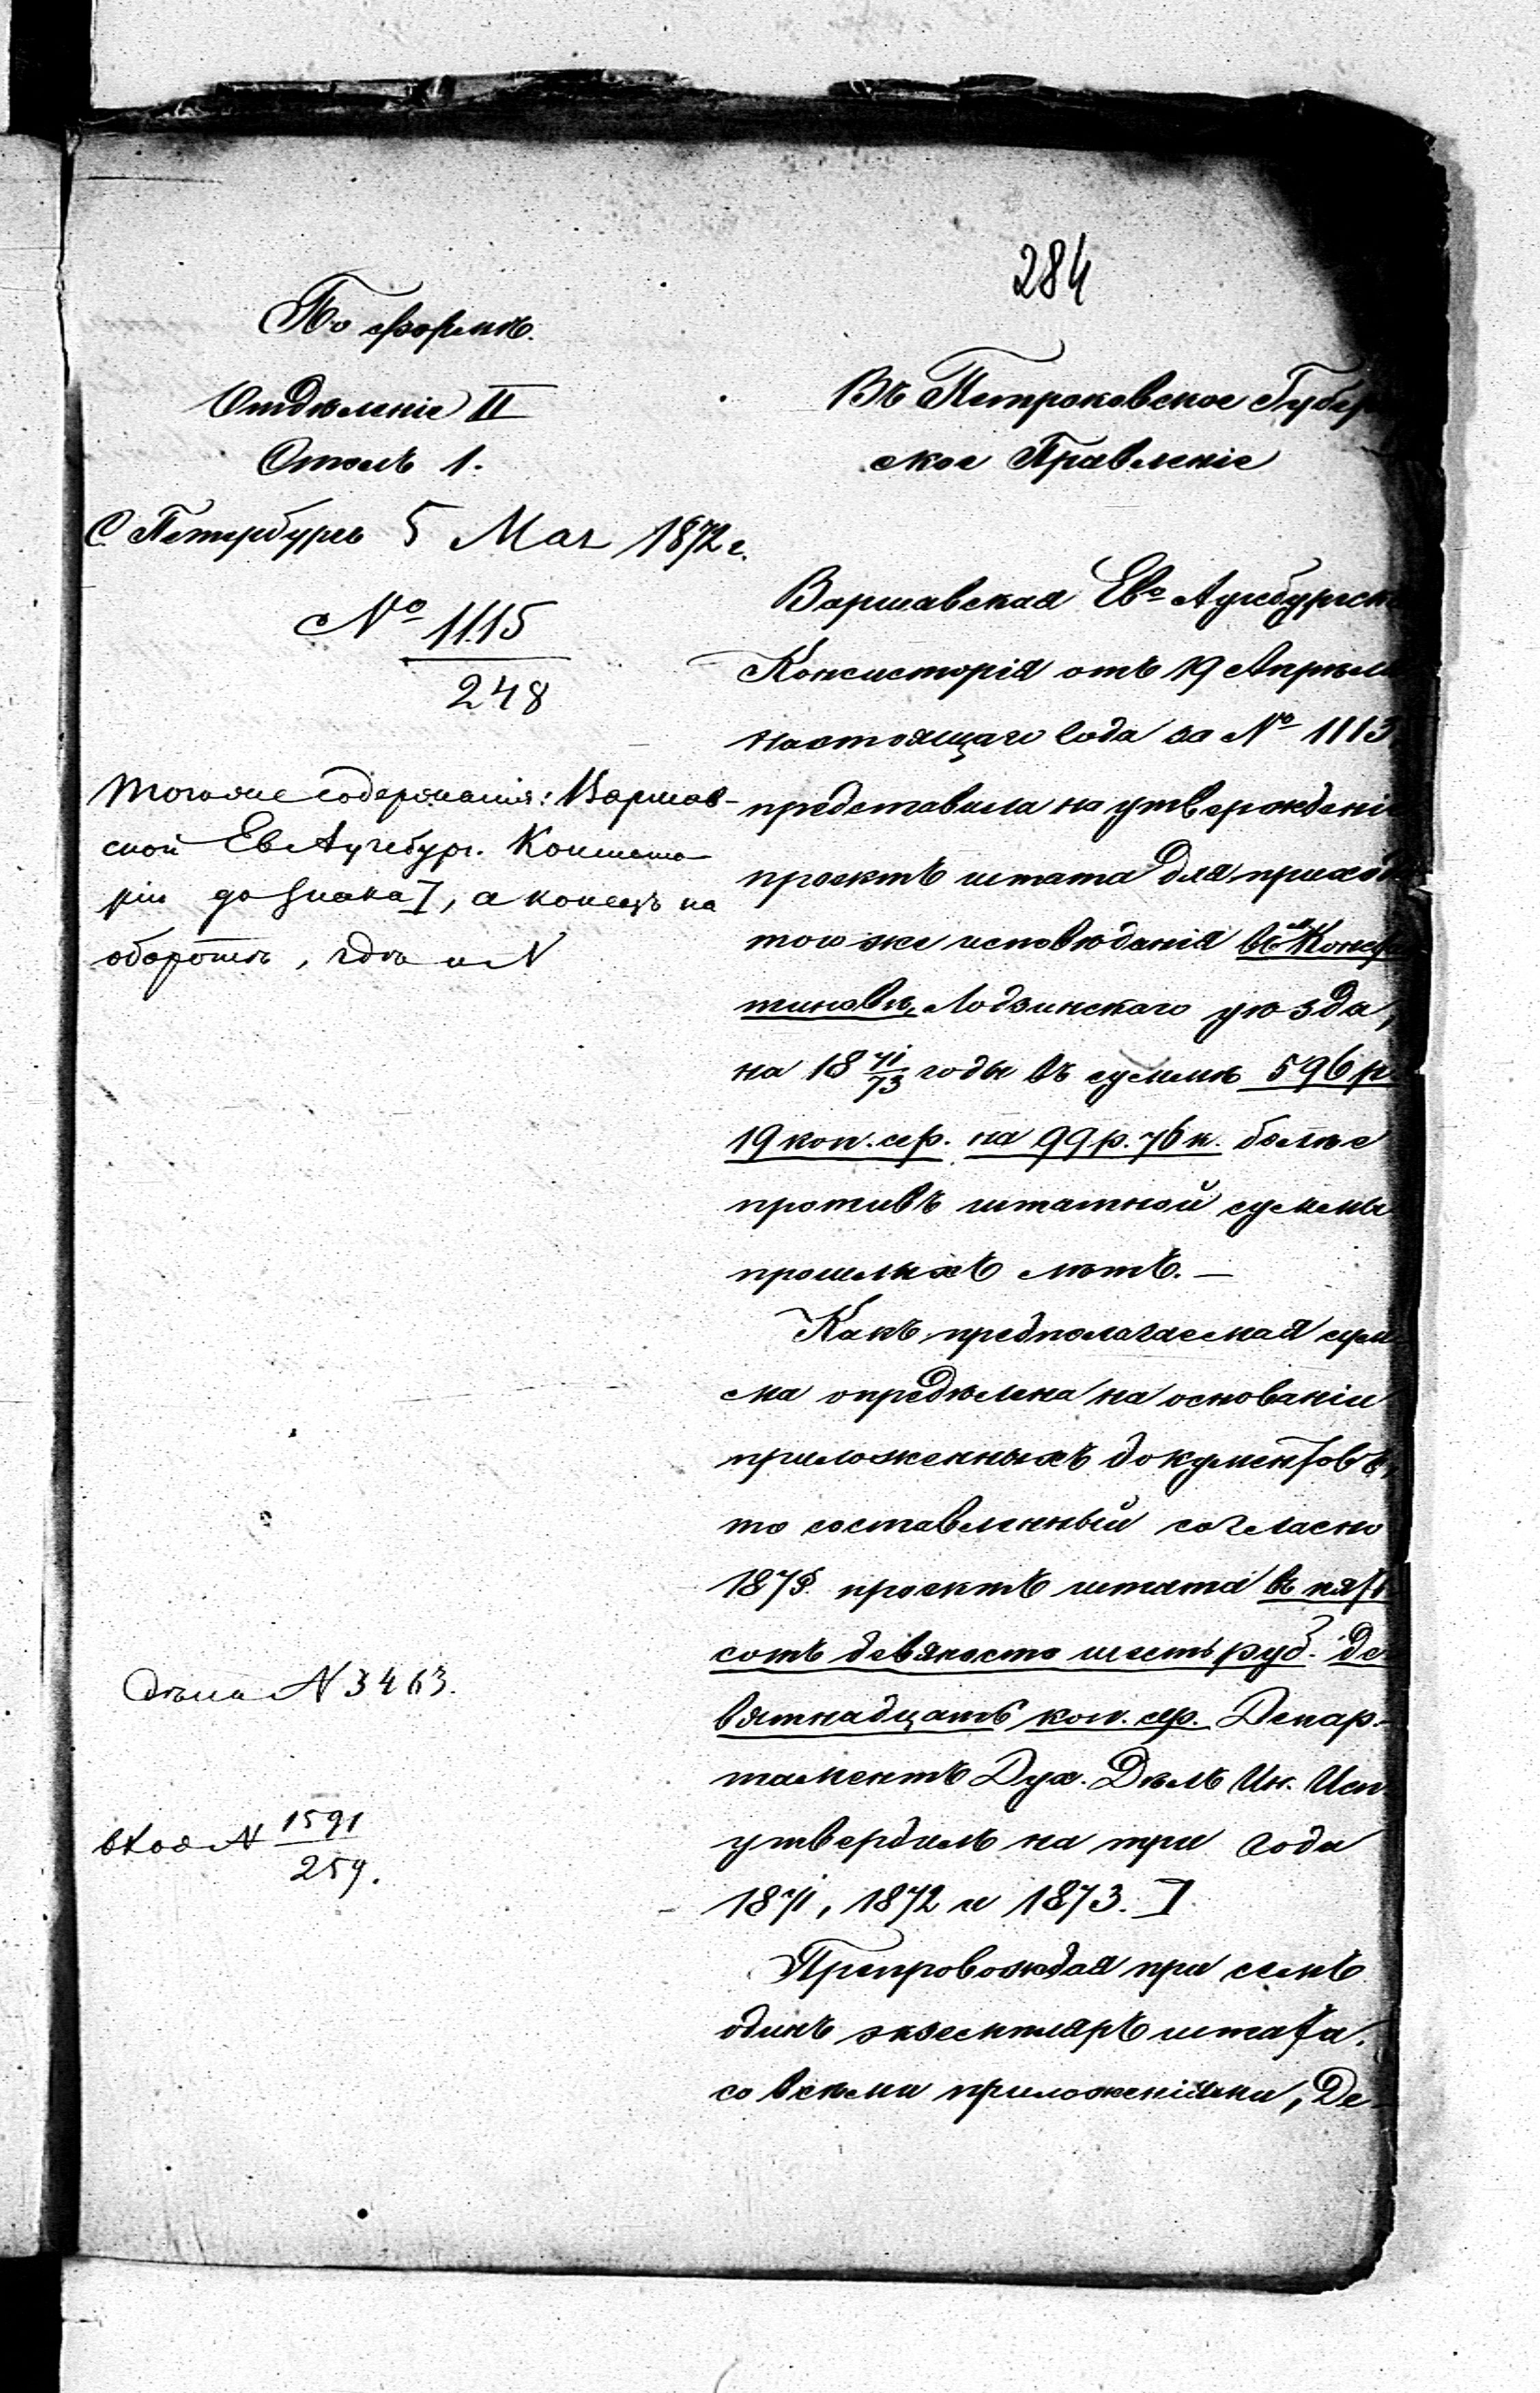 284
По формѣ.
Отдѣленіе II
Столъ 1.
С. Петербургъ 5 Мая 1872 г.
№ 1115
248
Тогоже содержанія: Варшав-
ской Ев Аугсбург. Консисто-
ріи до знака ], а конецъ на
оборотѣ, гдѣ и N
Дѣла N 3463.
вход N 1591
259.
Въ Петроковское Губерн
ское Правленіе
Варшавская Ев° Аугсбургск
Консисторія отъ 19 Апрѣля
настоящаго года за № 1113
представила на утвержденіе
проектъ штата для прихода
того же исповѣданія въ Конст
тиновѣ, Лодзинскаго уѣзда,
на 18 71/73 годы въ суммѣ 596 р.
19 коп. сер. на 99 р. 76 к. болѣе
противъ штатной суммы
прошлыхъ лѣтъ. —
Какъ предполагаемая сум
ма опредѣлена на основаніи
приложенныхъ документовъ,
то составленный согласно
проектъ штата въ пять
сотъ девяносто шесть руб. де-
вятнадцать коп. сер. Депар-
таментъ Дух. Дѣлъ Ин. Исп.
утвердилъ на три года
1871, 1872 и 1873. ]
Препровождая при семъ
одинъ экземпляръ штата,
со всѣми приложеніями, Де-